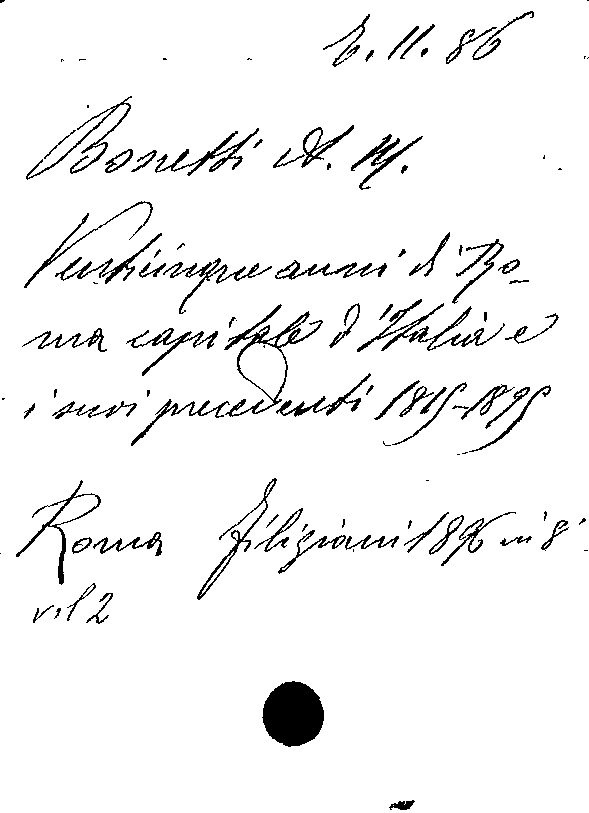 E. 11. 86
Bonetti A. M.
Venticinque anni di Ro-
ma capitale d'Italia e
i suoi precedenti 1815-1895
Roma Filiziani 1896 in 8°
vol 2